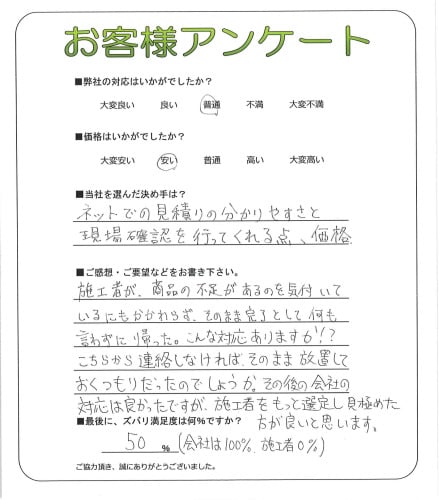 お客様アンケート
■弊社の対応はいかがでしたか?
大変良い 良い 普通 不満 大変不満
■価格はいかがでしたか?
大変安い 安い 普通 高い 大変高い
■当社を選んだ決め手は?
ネットでの見積りの分かりやすさと
現場確認を行ってくれる点、価格
■ご感想・ご要望などをお書き下さい。
施工者が、商品の不足があるのを気付いて
いるにもかかわらず、そのまま完了として何も
言わずに帰った。こんな対応ありますか!?
こちらから連絡しなければ、そのまま放置して
おくつもりだったのでしょうか。その後の会社の
対応は良かったですが、施工者をもっと選定し見極めた
方が良いと思います。
■最後に、ズバリ満足度は何%ですか?
50 % (会社は100% 施工者0%)
ご協力頂き、誠にありがとうございました。